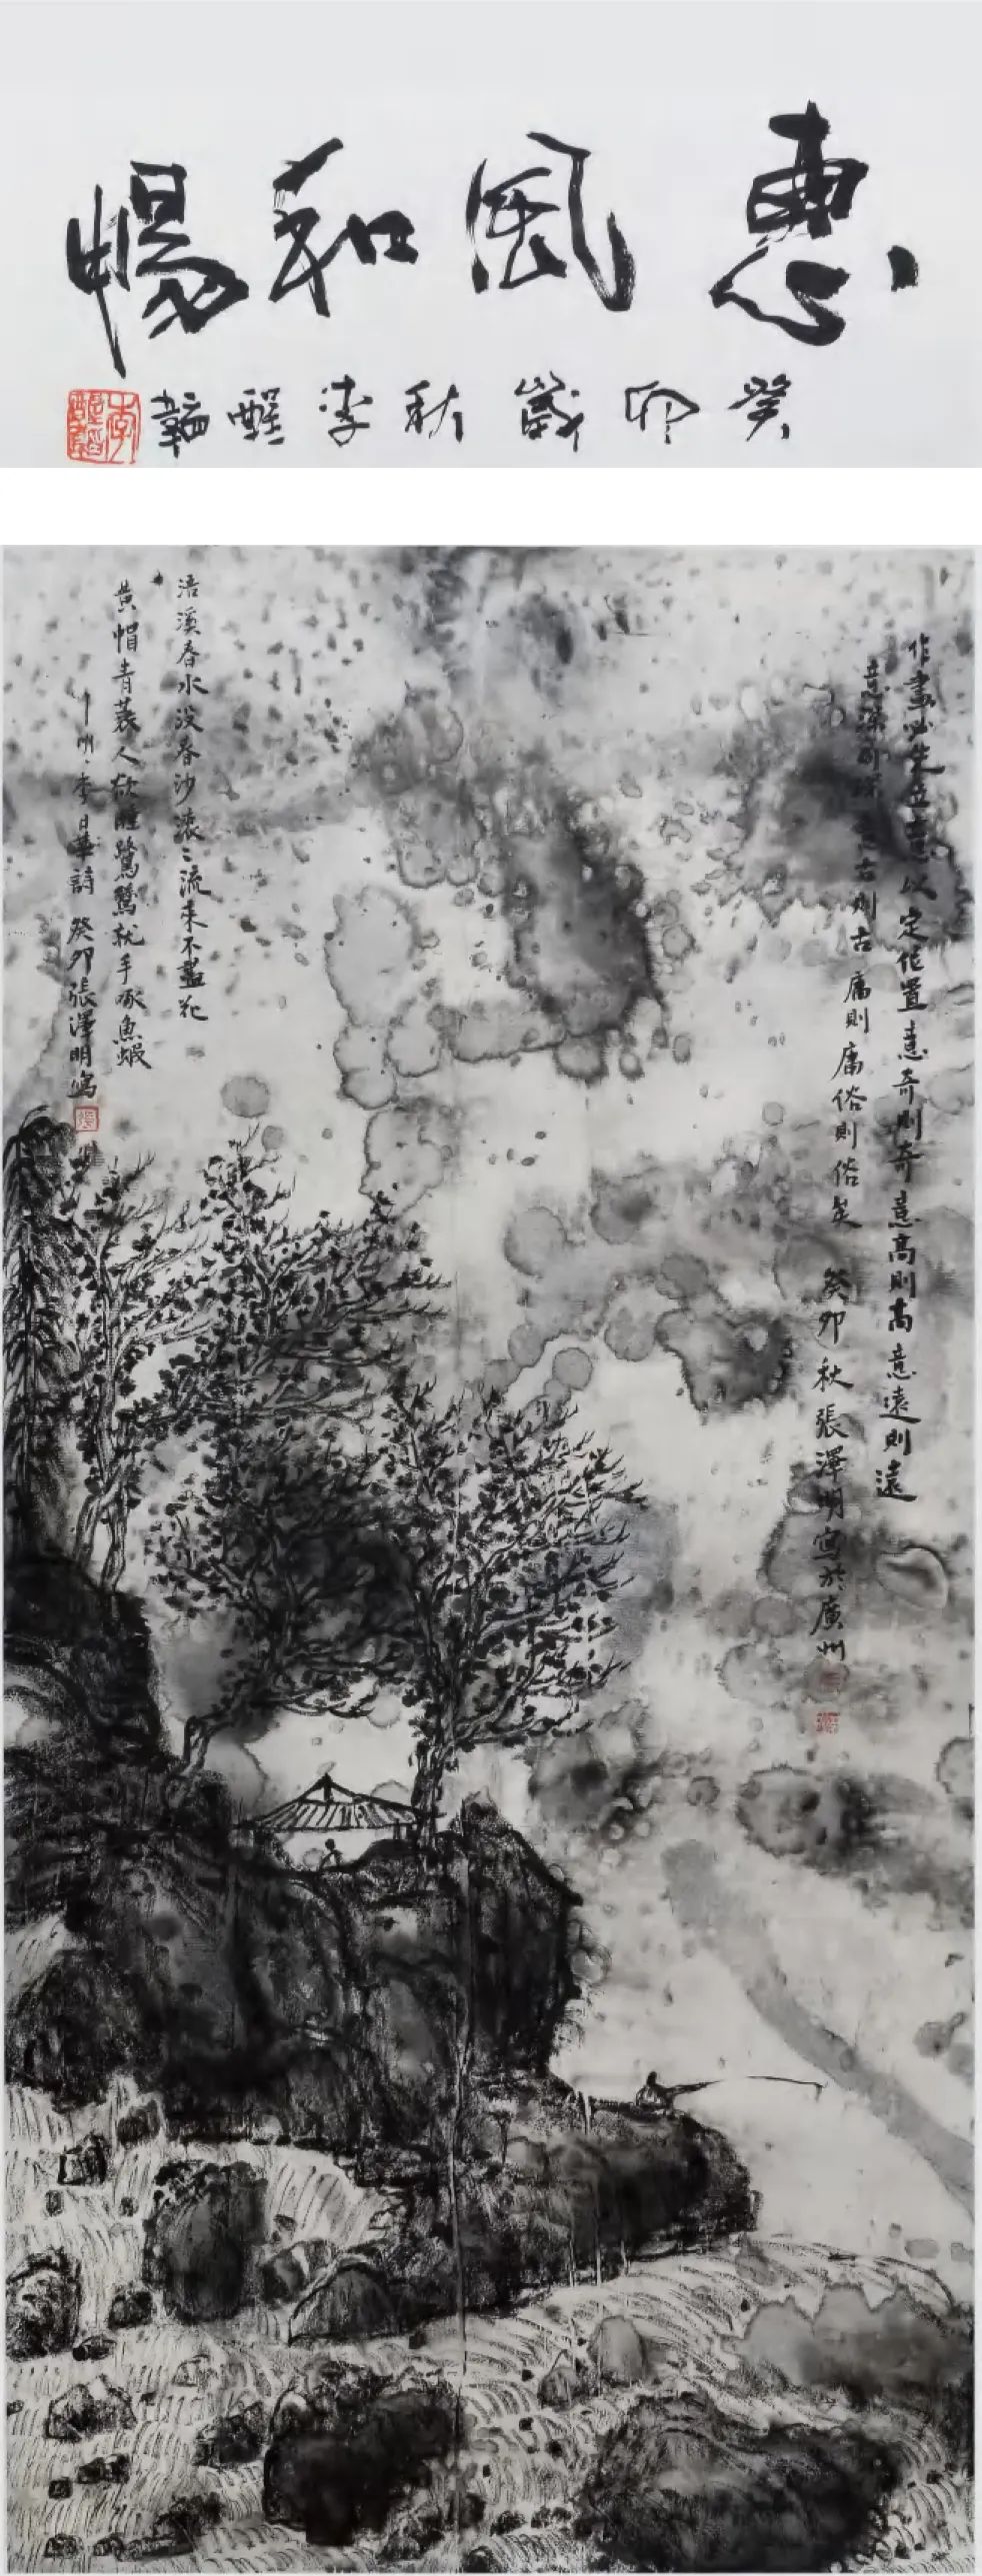 惠風和暢
癸卯歲秋李醒韜
作畫必先立意以定位置意奇則奇意高則高意遠則遠
意深則深意古則古庸則庸俗則俗矣
癸卯秋張澤明寫於廣州
浯溪春水没春沙滾〻流來不盡花
黄帽青蓑人欲睡鷺鷥就手啄魚蝦
明·李日華詩 癸卯張澤明寫